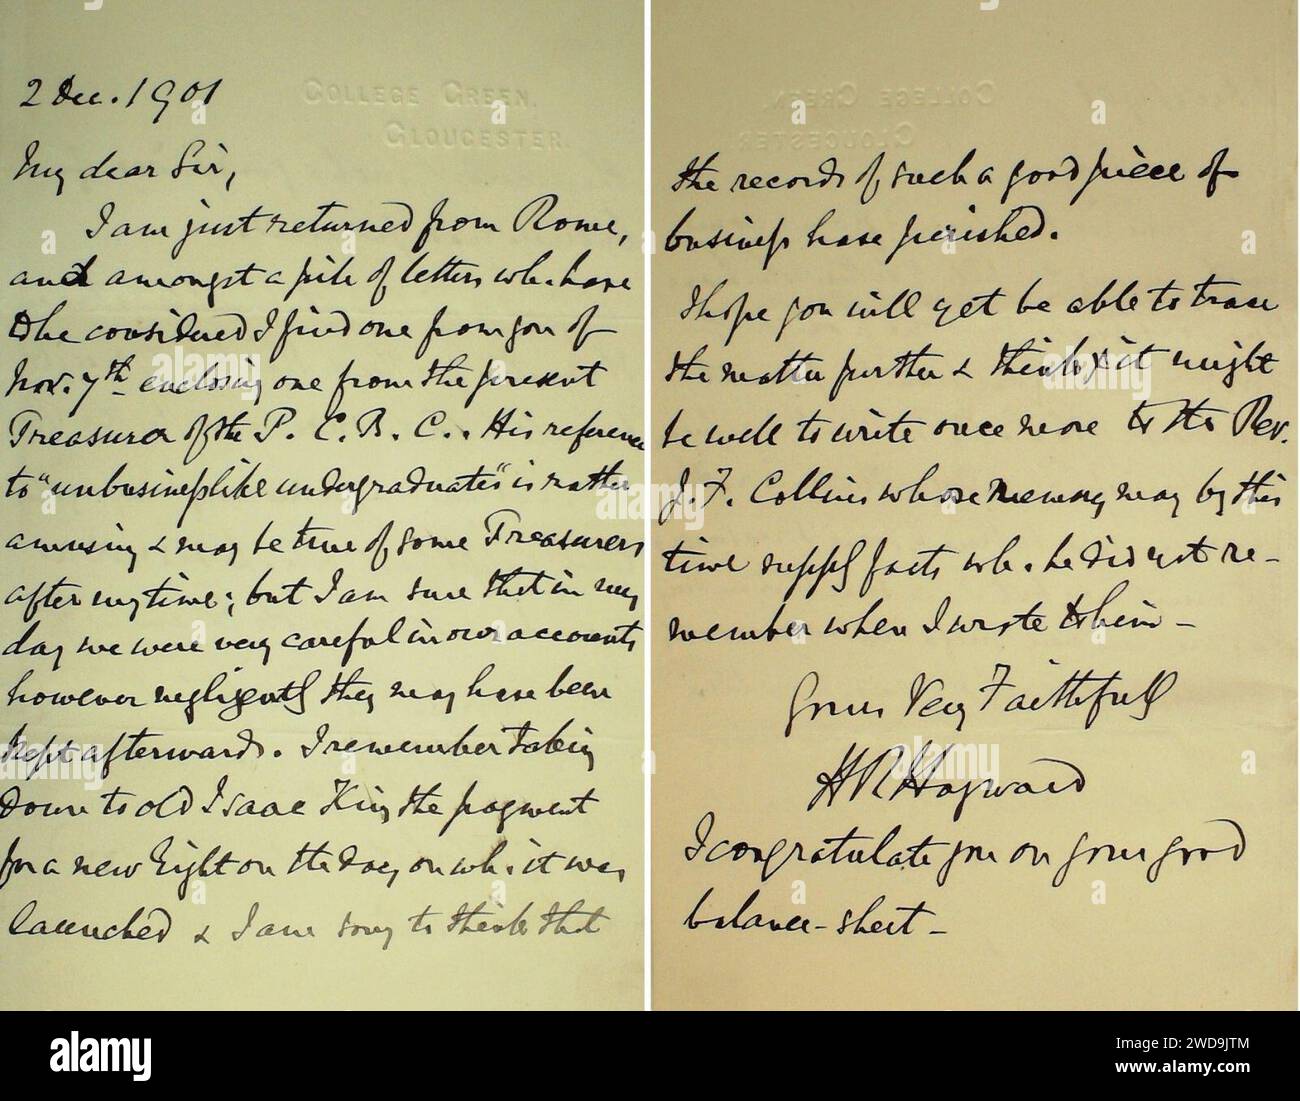 COLLEGE GREEN.
GLOUCESTER.
2 Dec. 1901
My dear Sir,
I am just returned from Rome,
and amongst a pile of letters wh. have
to be considered I find one from you of
Nov. 7th enclosing one from the present
Treasurer of the P. C. B. C.. His reference
to "unbusinesslike undergraduates" is rather
amusing & may be true of some Treasurers
after my time; but I am sure that in my
day we were very careful in our accounts
however negligently they may have been
kept afterwards. I remember taking
down to old Isaac King the payment
for a new Eight on the day on wh. it was
launched & I am sorry to think that
the records of such a good piece of
business have perished.
I hope you will yet be able to trace
the matter further & think it might
be well to write once more to the Rev.
J. F. Collins whose memory may by this
time supply facts wh. he did not re-
member when I wrote to him -
Yours Very Faithfully
H R Hayward
I congratulate you on your good
balance-sheet -
alamy
Image ID: 2WD9JTM
www.alamy.com